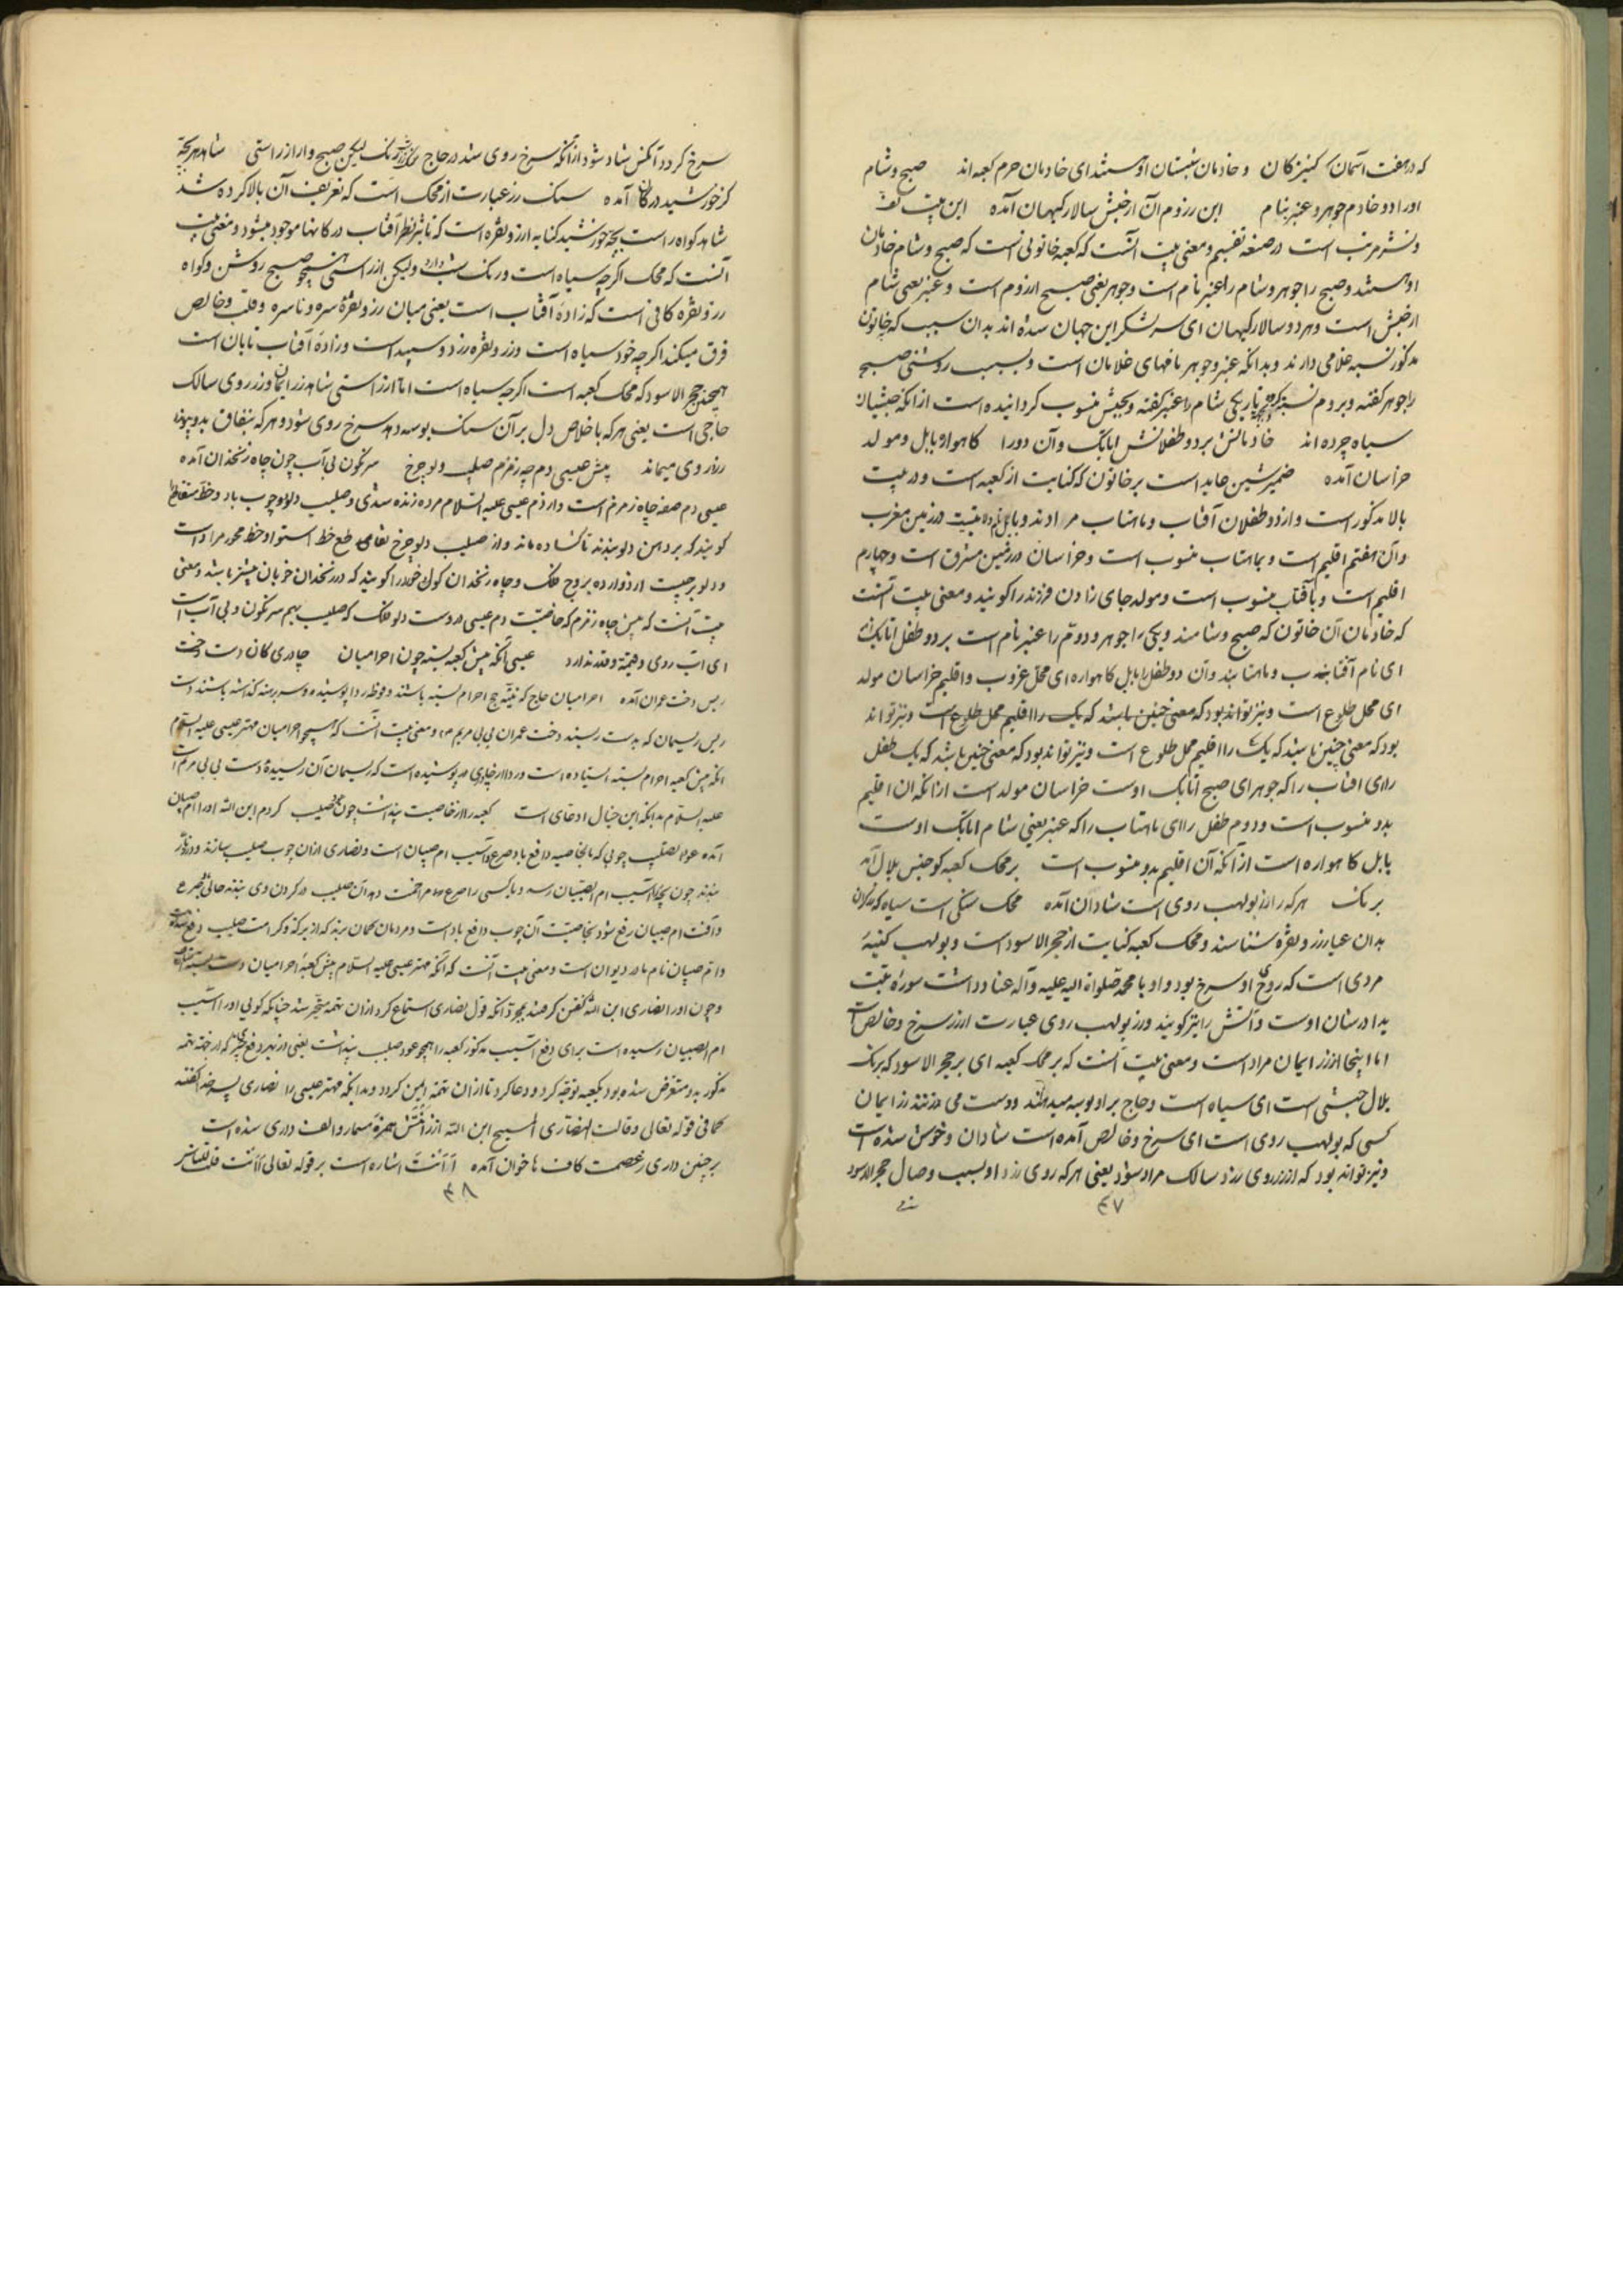 که در هفت آسمان کنیزکان و خادمان شبستان او هستند ای خادمان حرم کعبه اند صبح و شام
او را دو خادم جوهر و عنبر بنام این ز روم آن از حبش سالار کیهان آمده این بیت لف
و نشر مرتب است در صنعه تقسیم و معنی بیت آنست که کعبه خاتونی است که صبح و شام خادمان
او هستند و صبح را جوهر و شام را عنبر نام است و جوهر یعنی صبح از روم است و عنبر یعنی شام
از حبش است و هر دو سالار کیهان ای سر لشکر این جهان شده اند بدان سبب که بخاتون
مذکور نسبه غلامی دارند و بدانکه عنبر و جوهر نامهای غلامان است و بسبب روشنی صبح
را جوهر گفته و بروم نسبت کرده تاریکی شام را عنبر گفته و بحبش منسوب گردانیده است از آنکه حبشیان
سیاه چرده اند خادمانش بر دو طفلانش اتابک وان دو را گاهواره بابل و مولد
خراسان آمده ضمیر شین عاید است بر خاتون که کنایت از کعبه است و در بیت
بالا مذکور است و از دو طفلان آفتاب و ماهتاب مرادند و بابل در زمین مغرب
و آن هفتم اقلیم است و بماهتاب منسوب است و خراسان در زمین مشرق است و چهارم
اقلیم است و بآفتاب منسوب است و مولد جای زادن فرزند را گویند و معنی بیت آنست
که خادمان آن خاتون که صبح و شامند و یکی را جوهر و دوم را عنبر نام است بر دو طفل اتابک اند
ای نام آفتاب و ماهتابند وان دو طفل را بابل گاهواره ای محل غروب و اقلیم خراسان مولد
ای محل طلوع است و نیز تواند بود که معنی چنین باشد که یک را اقلیم محل طلوع است و نیز تواند
بود که معنی چنین باشد که یک را اقلیم محل طلوع است و نیز تواند بود که معنی چنین باشد که یک طفل
را ای افتاب را که جوهر ای صبح اتابک اوست خراسان مولد است از آنکه ان اقلیم
بدو منسوب است و دوم طفل را ای ماهتاب را که عنبر یعنی شام اتابک اوست
بابل گاهواره است از آنکه آن اقلیم بدو منسوب است بر محک کعبه کو جنس بلال آمد
برنگ هر که را زر بولهب روی است شادان آمده محک سنگی است سیاه که زرگران
بدان عیار زر و نقره شناسند و محک کعبه کنایت از حجر الاسود است و بولهب کنیه
مردی است که روی او سرخ بود و او با محمد صلواة الله علیه و آله عناد داشت سوره تبت
یدا در شان اوست و آتش را نیز گویند و زر بولهب روی عبارت از زر سرخ و خالص است
اما اینجا از زر ایمان مراد است و معنی بیت آنست که بر محک کعبه ای بر حجر الاسود که برنگ
بلال حبشی است ای سیاه است و حاج بر او بوسه میدهند و دست می زنند زر ایمان
کسی که بولهب روی است ای سرخ و خالص آمده است شادان و خوش شده است
و نیز تواند بود که از زر روی زرد سالک مراد شود یعنی هر که روی زرد او بسبب وصال حجر الاسود
۴۷
سرخ گردد آنکس شاد شود از آنکه سرخ روی شد در حاج رنگ لیکن صبح وار از راستی شاهد هر بچه
کز خورشید در کان آمده سنگ زر عبارت از محک است که تعریف آن بالا کرده شد
شاهد گواه راست بچه خورشید کنایه از زر و نقره است که بتاثیر نظر آفتاب در کانها موجود میشود و معنی بیت
آنست که محک اگر چه سیاه است و رنگ شب دارد ولیکن از راستی همچو صبح روشن و گواه
زر و نقره کافی است که زاده آفتاب است یعنی میان زر و نقره سره و ناسره و قلب و خالص
فرق میکند اگر چه خود سیاه است و زر و نقره زرد و سپید است و زاده آفتاب تابان است
همچنین حجر الاسود که محک کعبه است اگر چه سیاه است اما از راستی شاهد زر ایمان و زر روی سالک
حاجی است یعنی هر که باخلاص دل بر آن سنگ بوسه دهد سرخ روی شود و هر که بنفاق بدو پیوندد
زرد روی میماند پیش عیسی دم چه زمزم صلیب دلو چرخ سرنگون بی آب چون چاه زنخدان آمده
عیسی دم صفه چاه زمزم است و از دم عیسی علیه السلام مرده زنده شدی و صلیب دلو دو چوب باد و خط متقاطع را
گویند که بر دهن دلو بندند تا گشاده ماند و از صلیب دلو چرخ تقاطع خط استوا و خط محور مراد است
و دلو برجیست از دوازده بروج فلک و چاه زنخدان گول خورد را گویند که در زنخدان خوبان بیشتر باشد و معنی
بیت آنست که پیش چاه زمزم که خاصیت دم عیسی در دوست دلو فلک که صلیب بهم سرنگون و بی آب است
ای آب روی و قیمة و قدر ندارد عیسی آنکه پیش کعبه بسته چون احرامیان چادری کان دست دخت
ریس دخت عمران آمده احرامیان حاج که به نیّة حج احرام بسته باشند و فوطه و ردا پوشیده و سر برهنه گذاشته باشند دست
ریس ریسمان که بدست ریسند دخت عمران بی بی مریم و معنی بیت آنست که همچو احرامیان مهتر عیسی علیه السلام
آنکه پیش کعبه احرام بسته ایستاده است و ردا از چادری پوشیده است که ریسمان آن ریسیده دست بی بی مریم است
علیه السلام بدانکه این خیال ادعای است کعبه را از خاصیت پنداشت چون عود صلیب کردم ابن الله او را ام صبیان
آمده عود الصلیب چوبی که بالخاصیه دافع باد صرع و آسیب ام صبیان است و نصاری از ان چوب صلیب سازند و در زنار
بندند چون بچه را آسیب ام الصبیان رسد و یا کسی را صرع مزاحمت دهد آن صلیب در گردن وی بندند حالی صرع
و آفت ام صبیان رفع شود بخاصیت آن چوب دافع باد است و مردمان گمان برند که از برکة و کرامت صلیب دفع شده است
و ام صبیان نام مادر دیوان است و معنی بیت آنست که آنکه مهتر عیسی علیه السلام پیش کعبه احرامیان دست بسته
و چون او را نصاری ابن الله گفتن گرفتند بمجرد آنکه قول نصاری استماع کرد از ان تهمه متحیر شد چنانکه گویی او را آسیب
ام الصبیان رسیده است برای دفع آسیب مذکور کعبه را همچو عود صلیب پنداشت یعنی از بهر دفع تحیری که از جهة تهمه
مذکور بدو متعرض شده بود بکعبه توجه کرد و دعا کرد تا از ان تهمه ایمن گردد و بدانکه مهتر عیسی را نصاری پسر خدا گفتند
کما فی قوله تعالی و قالت النصاری المسیح ابن الله از زآنتش همزه مسمار و الف داری شده است
بر چنین داری ز عصمت کاف ها خوان آمده ءَاَنْتَ اشاره است بر قوله تعالی ءَاَنْتَ قلت للناس
۴۸